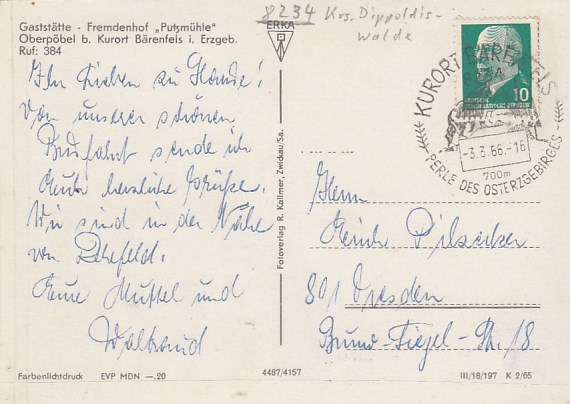 Gaststätte - Fremdenhof „Putzmühle"
Oberpöbel b. Kurort Bärenfels i. Erzgeb.
Ruf: 384
8234 Krs. Dippoldis-
walde
ERKA
Ihr Lieben zu Hause!
Von unserer schönen
Busfahrt sende ich
Euch herzliche Grüße.
Wir sind in der Nähe
von Rehefeld.
Eure Muttel und
Waltraud
Fotoverlag R. Kallmer, Zwickau/Sa.
10
DEUTSCHE DEMOKRATISCHE REPUBLIK
KURORT BÄRENFELS
-3.3.66.-16
700m
PERLE DES OSTERZGEBIRGES
Herrn
Erich
801 Dresden
18
Farbenlichtdruck EVP MDN —.20
4487/4157
III/18/197 K 2/65